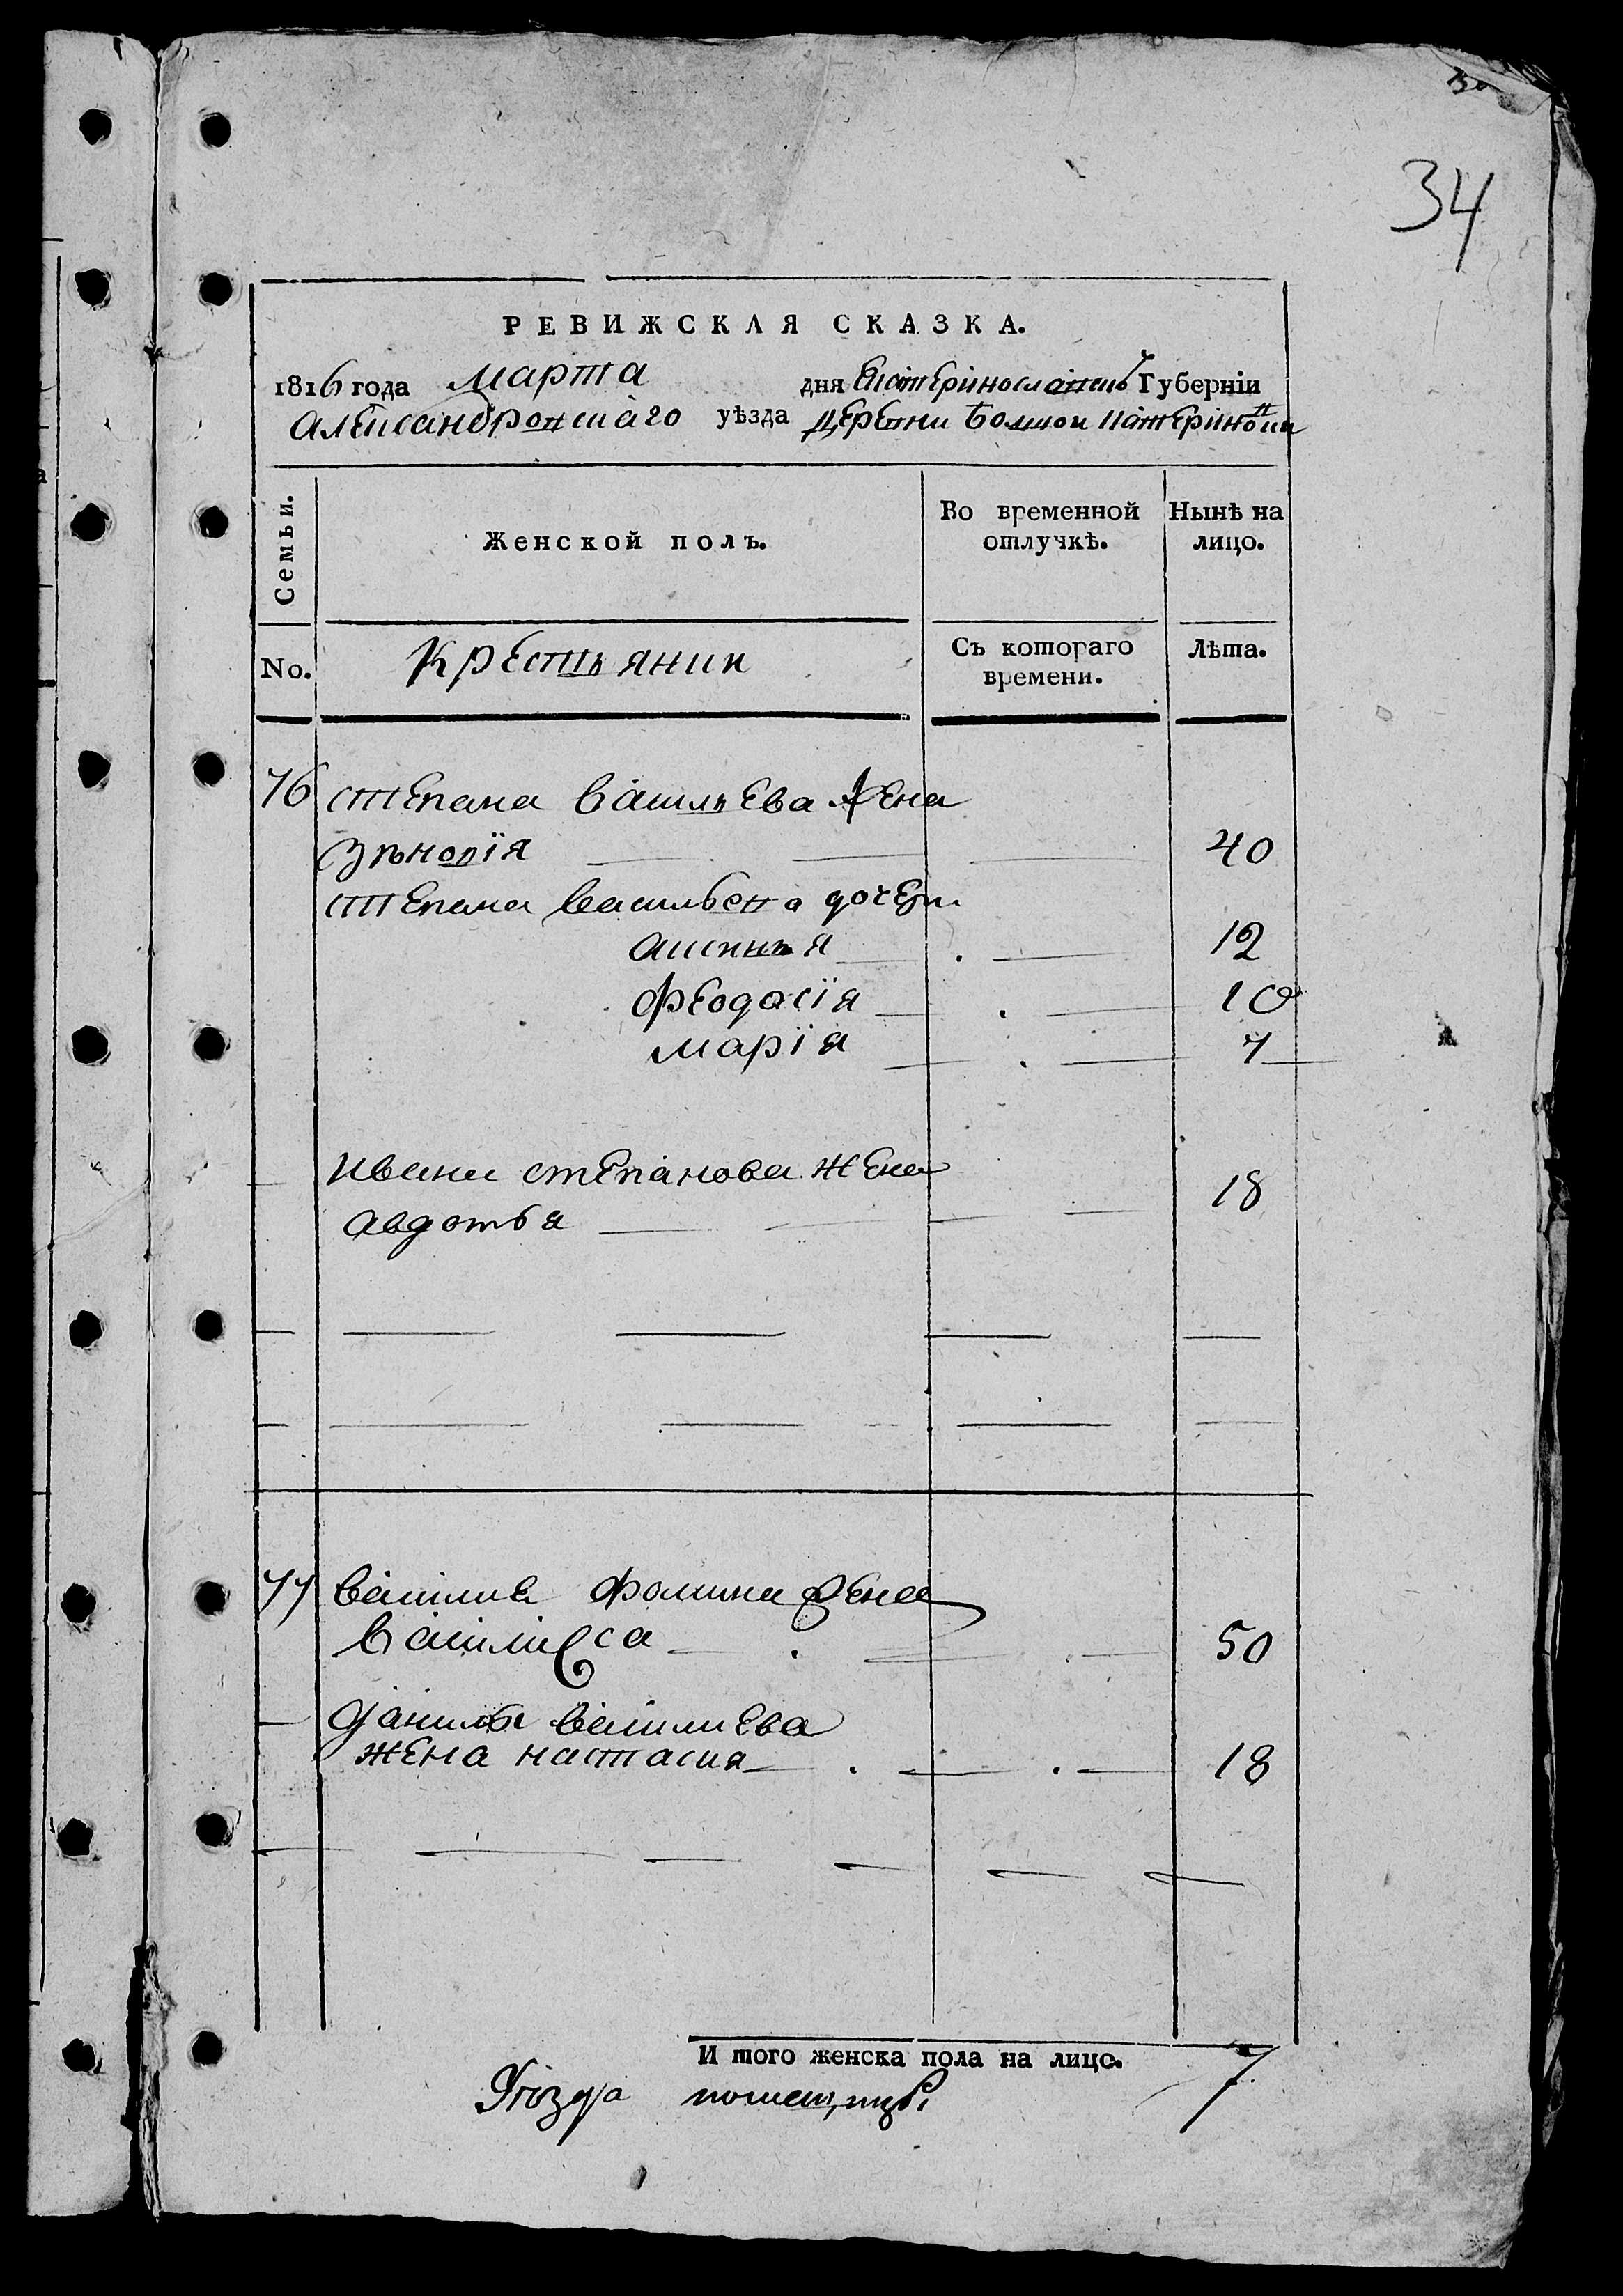 34
РЕВИЖСКАЯ СКАЗКА.
1816 года марта дня Екатеринославской Губерніи
александровскаго уѣзда деревни Болшои Катериновки
Семьи. Женской полъ. Во временной отлучкѣ. Нынѣ на лицо.
No. Крестьянии Съ котораго времени. Лѣта.
76 степана васильева жена
зѣновія 40
степана васильева дочери
аксинья 12
феодосія 10
марія 7
ивана степанова жена
авдотья 18
77 василия фомина жена
василиса 50
данилы василиева
жена настасия 18
И того женска пола на лицо. 7
уѣзда помещицы